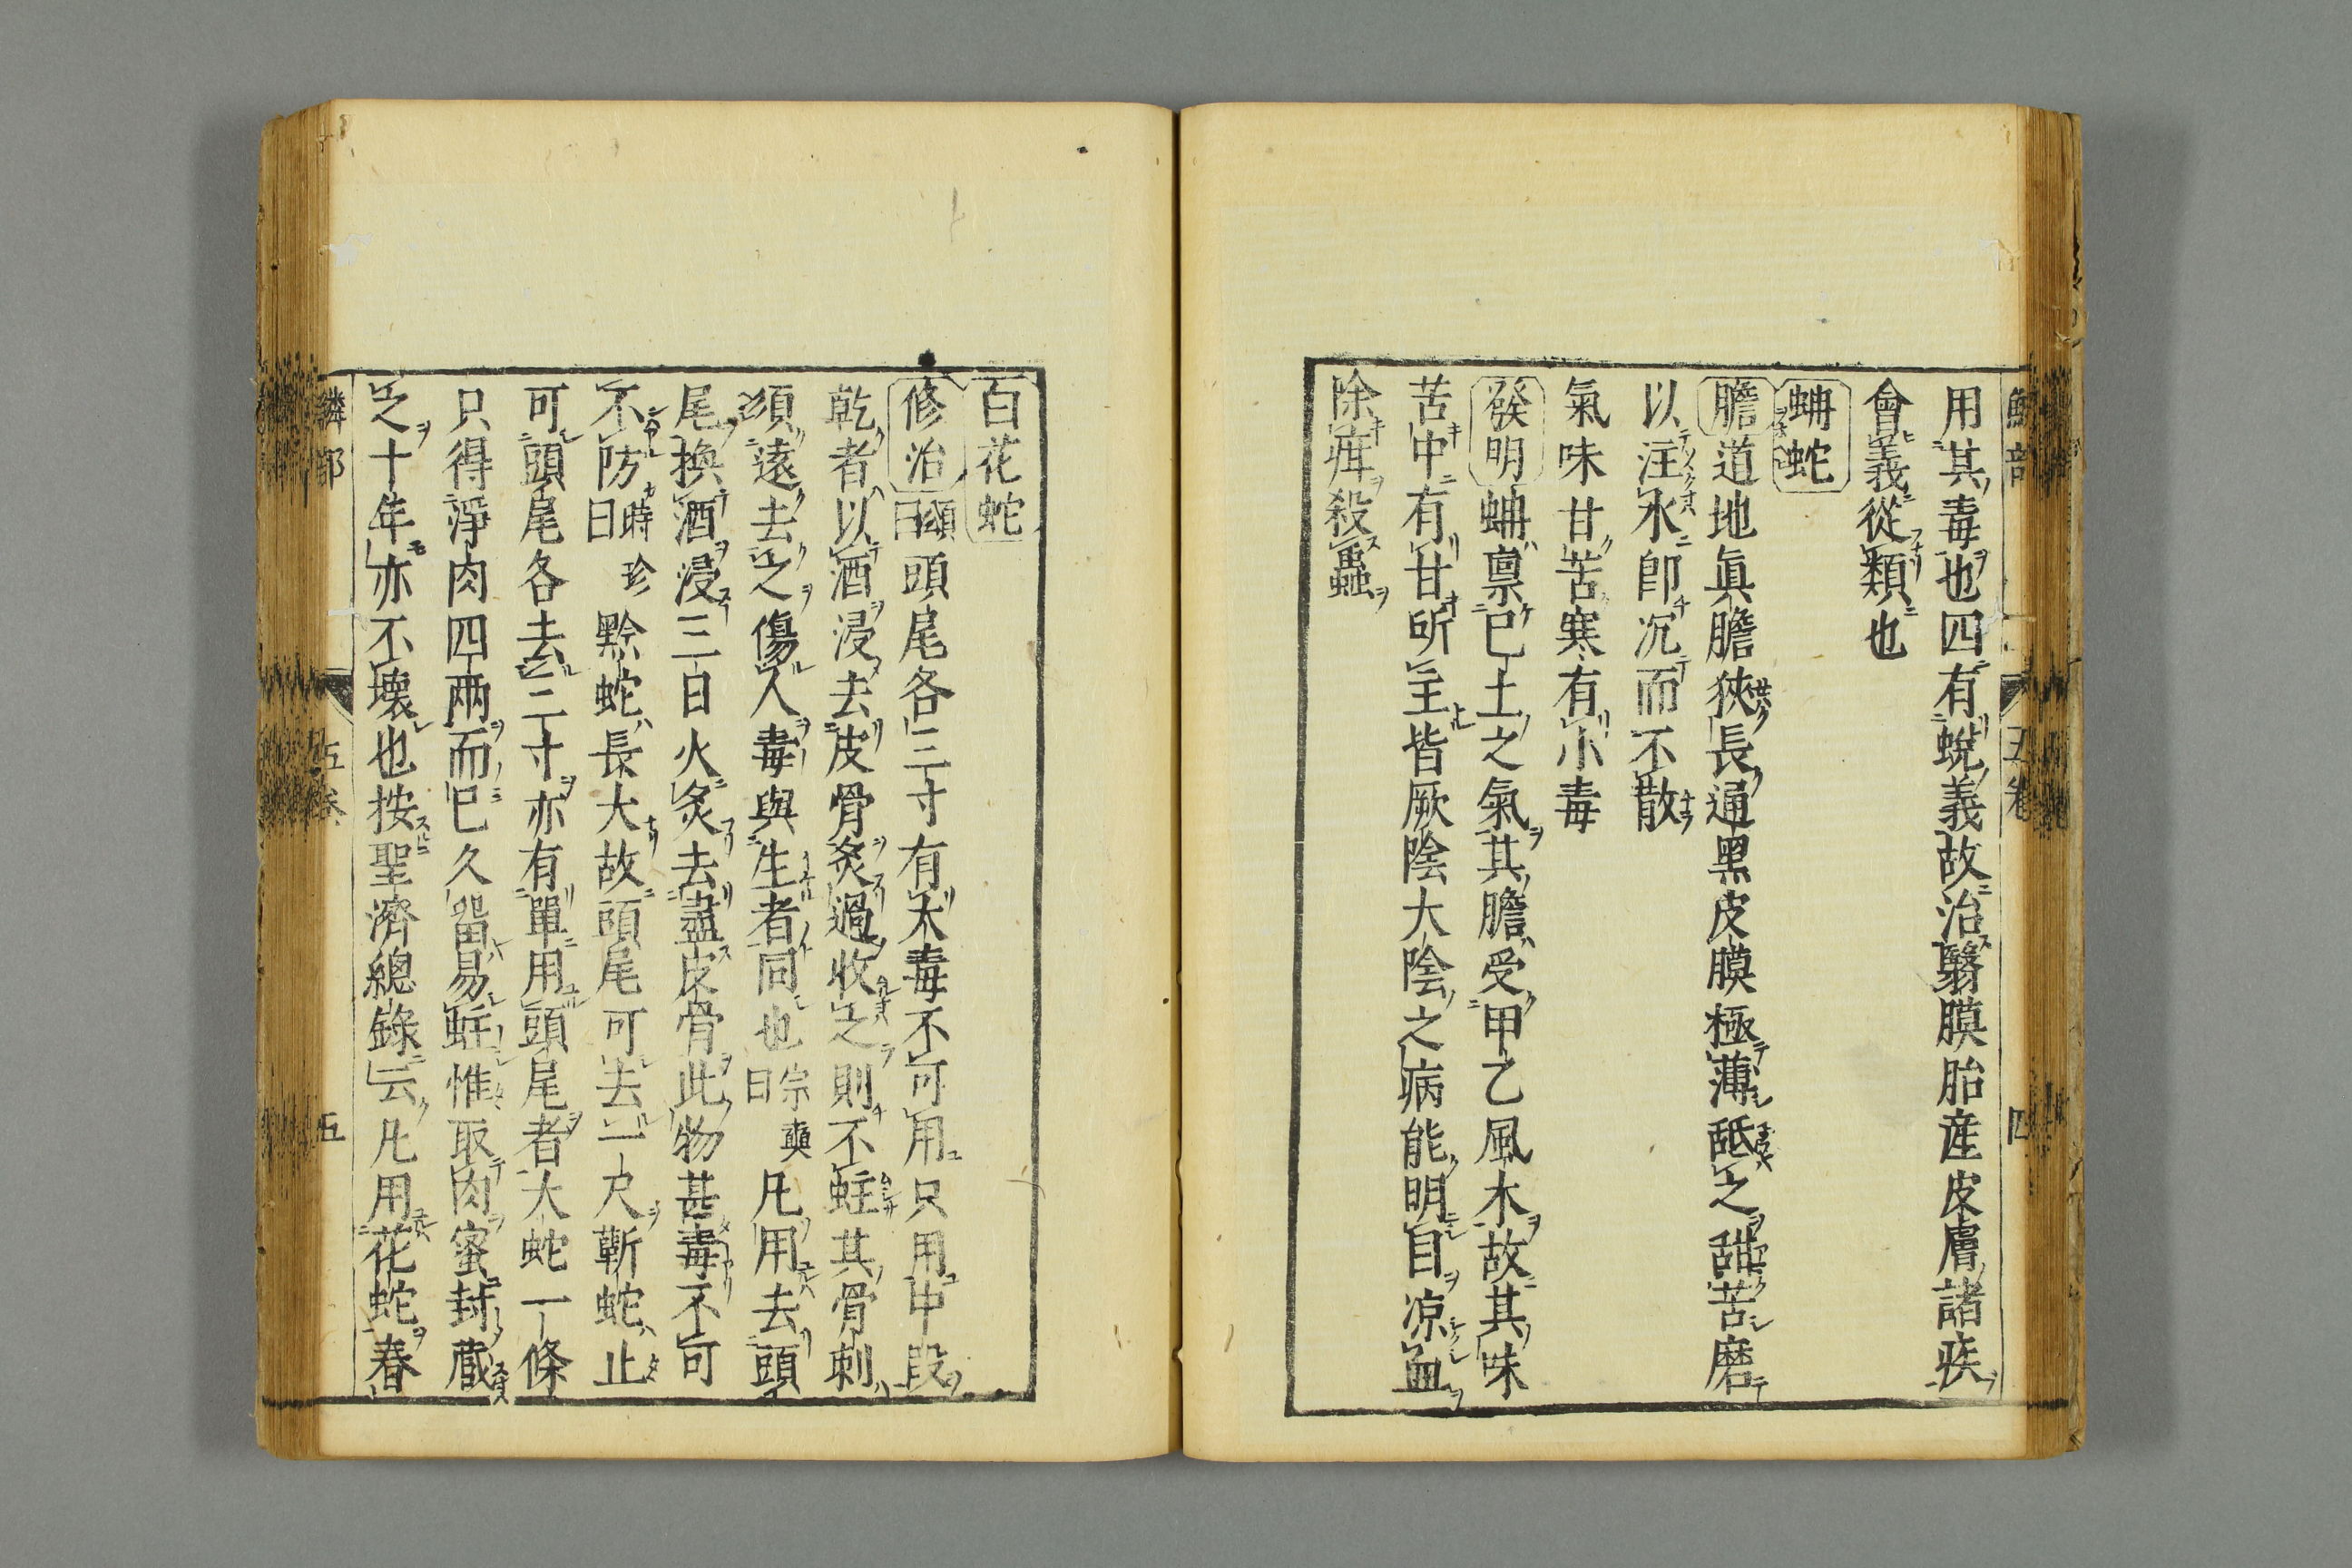 用其毒也四有蛻義故治翳膜胎産皮膚諸疾
會義從類也
蚺蛇
膽道地眞膽狹長通黑皮膜極薄舐之甜苦磨
以注水卽沉而不散
氣味甘苦寒有小毒
發明蚺禀巳土之氣其膽受甲乙風木故其味
苦中有甘所主皆厥陰大陰之病能明目凉血
除疳殺蟲
四
百花蛇
修治頌曰頭尾各三寸有大毒不可用只用中段
乾者以酒浸去皮骨炙過收之則不蛀其骨刺
須遠去之傷人毒與生者同也宗奭曰凡用去頭
尾換酒浸三日火炙去盡皮骨此物甚毒不可
不防時珍曰黔蛇長大故頭尾可去一尺蘄蛇止
可頭尾各去三寸亦有單用頭尾者大蛇一條
只得淨肉四兩而已久留易蛀惟取肉蜜封藏
之十年亦不壞也按聖濟總錄云凡用花蛇春
鱗部 五卷 五